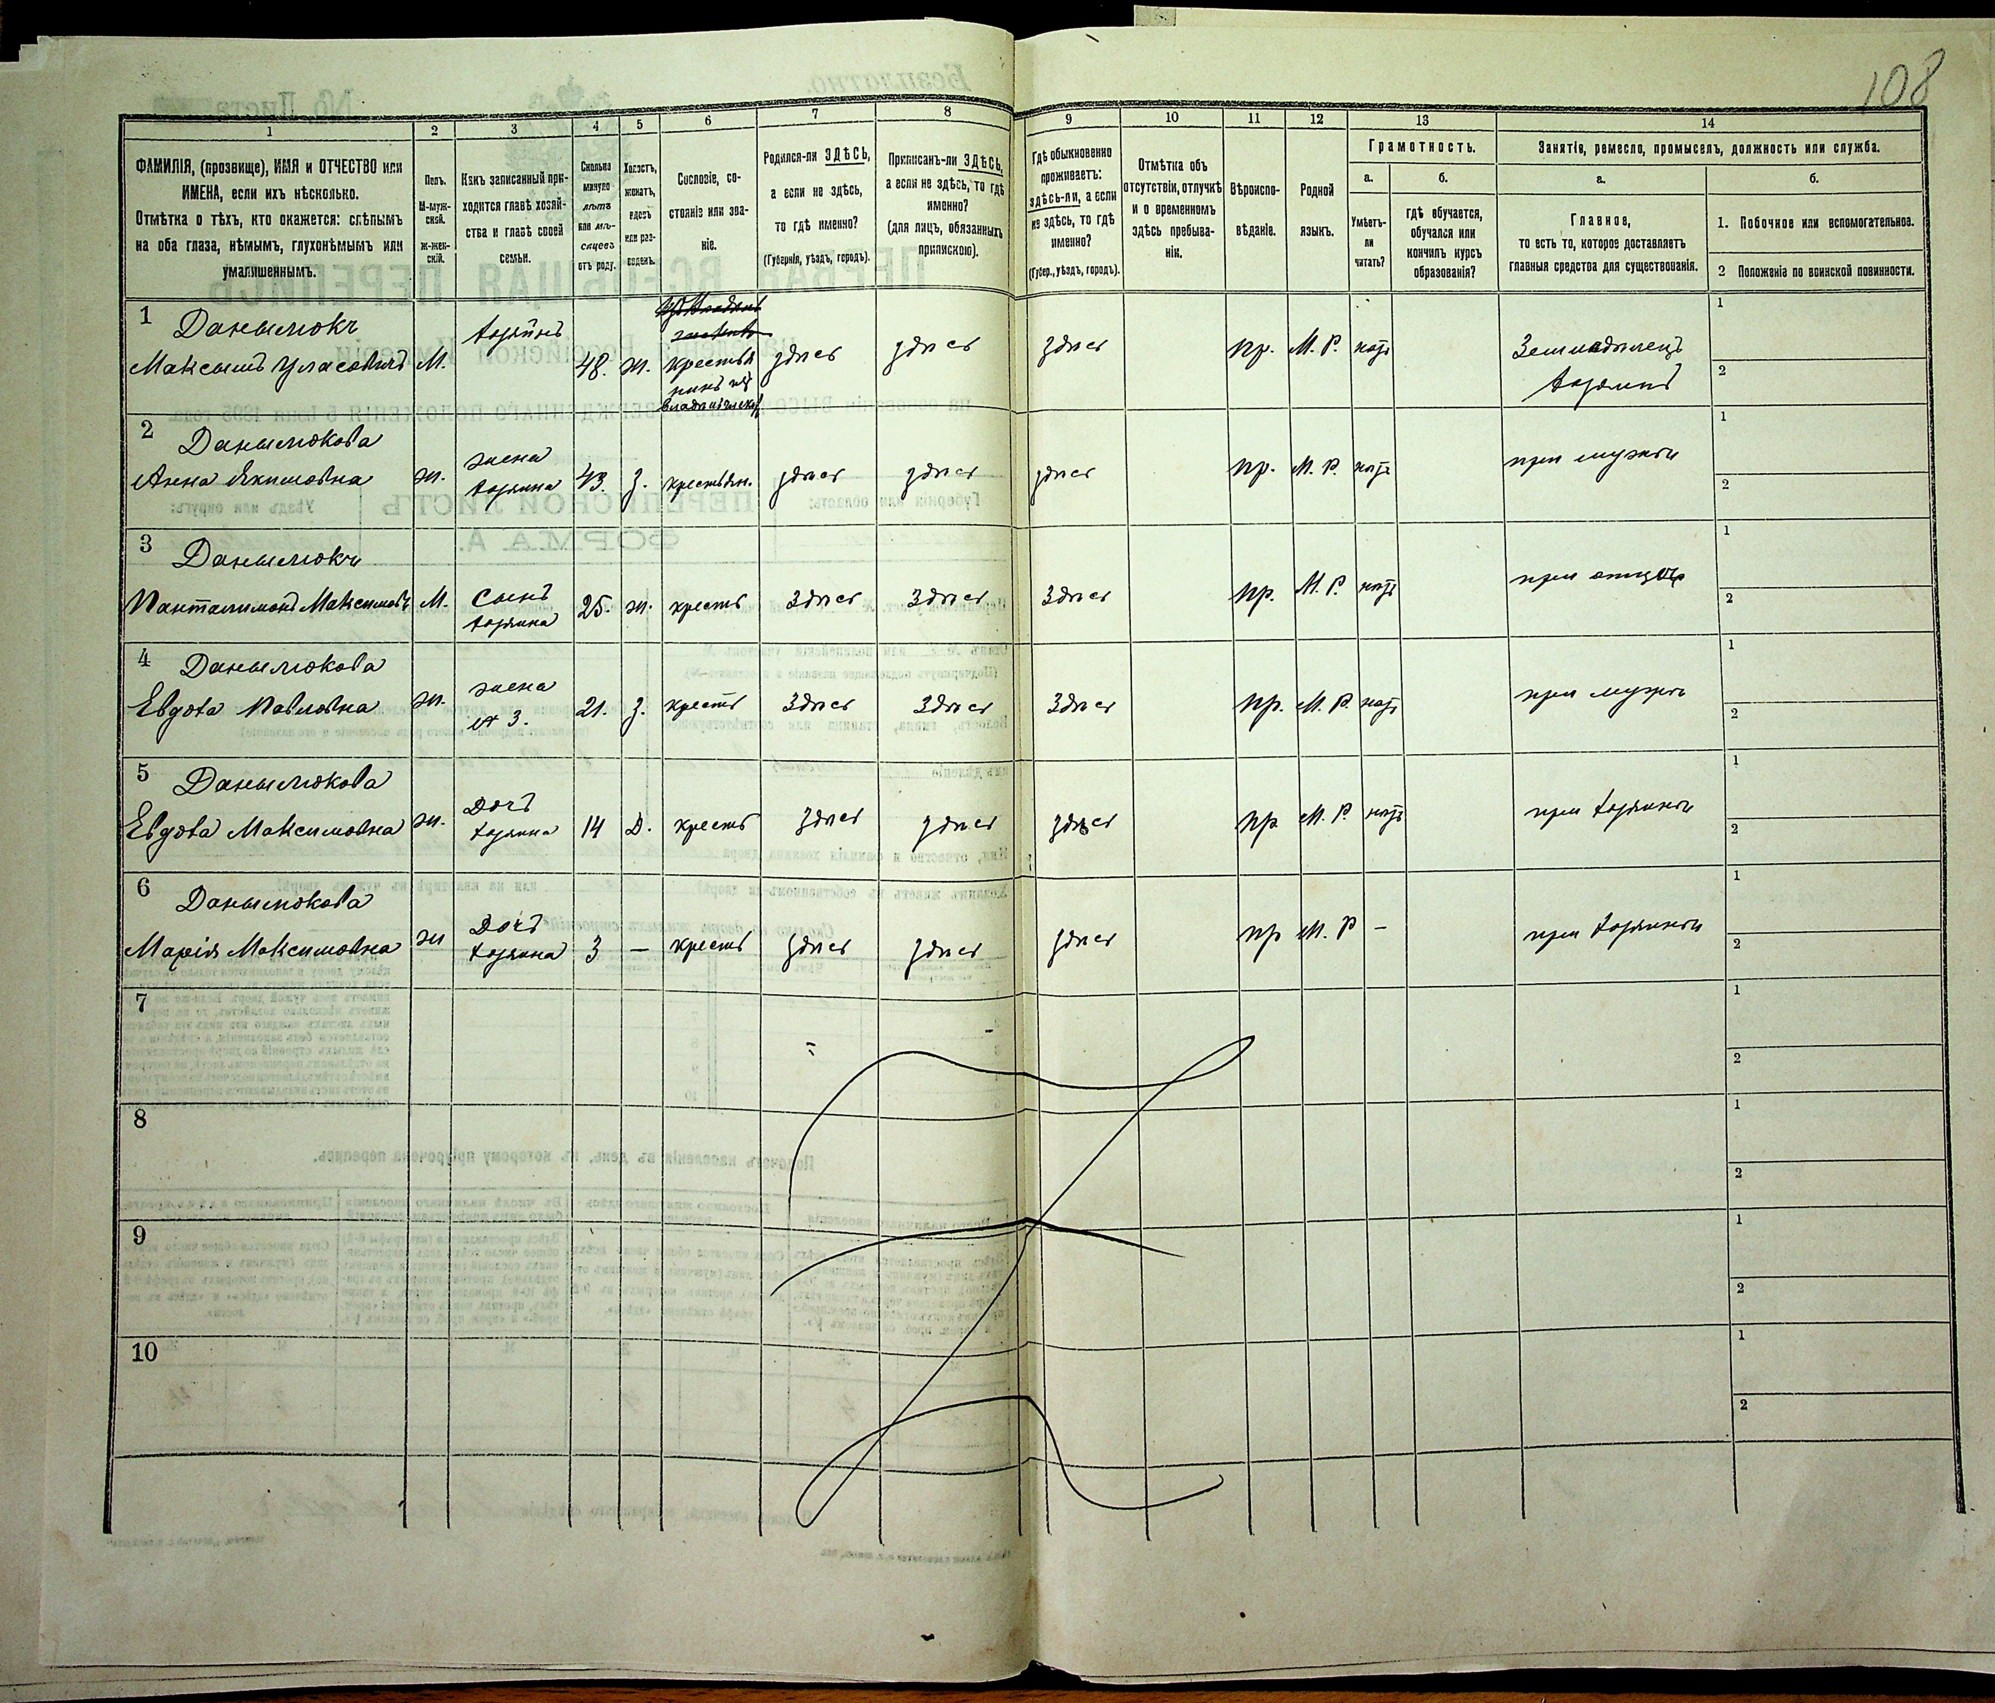 108
1
2
3
4
5
6
7
8
9
10
11
12
13
14
ФАМИЛІЯ, (прозвище), ИМЯ и ОТЧЕСТВО или
ИМЕНА, если ихъ нѣсколько.
Отмѣтка о тѣхъ, кто окажется: слѣпымъ
на оба глаза, нѣмымъ, глухонѣмымъ или
умалишеннымъ.
Полъ.
М-муж-
ской.
Ж-жен-
скій.
Какъ записанный при-
ходится главѣ хозяй-
ства и главѣ своей
семьи.
Сколько
минуло
лѣтъ
или мѣ-
сяцевъ
отъ роду.
Холостъ,
женатъ,
вдовъ
или раз-
веденъ.
Сословіе, со-
стояніе или зва-
ніе.
Родился-ли ЗДѢСЬ,
а если не здѣсь,
то гдѣ именно?
(Губернія, уѣздъ, городъ).
Приписанъ-ли ЗДѢСЬ,
а если не здѣсь, то гдѣ
именно?
(для лицъ, обязанныхъ
припискою).
Гдѣ обыкновенно
проживаетъ:
здѣсь-ли, а если
не здѣсь, то гдѣ
именно?
(Губер., уѣздъ, городъ).
Отмѣтка объ
отсутствіи, отлучкѣ
и о временномъ
здѣсь пребыва-
ніи.
Вѣроиспо-
вѣданіе.
Родной
языкъ.
Грамотность.
а.
б.
Умѣетъ-
ли
читать?
гдѣ обучается,
обучался или
кончилъ курсъ
образованія?
Занятіе, ремесло, промыселъ, должность или служба.
а.
б.
Главное,
то есть то, которое доставляетъ
главныя средства для существованія.
1. Побочное или вспомогательное.
2 Положеніе по воинской повинности.
1 Данылюкъ
Максымъ Уласовичъ М. 48. ж. крестья здѣсь здѣсь здѣсь пр. М. Р. нѣтъ Земледѣлецъ
1
2
2 Данылюкова
Анна Якимовна ж. жена 43. З. крестьян. здѣсь здѣсь здѣсь пр. М. Р. нѣтъ при мужьи
1
2
3 Данылюкъ
Панталимонъ Максимовъ М. Сынъ 25. ж. крестъ Здѣсь Здѣсь Здѣсь пр. М. Р. нѣтъ
1
2
4 Данылюкова
Евдота Павловна ж. жена № 3. 21. З. крестъ Здѣсь Здѣсь Здѣсь пр. М. Р. нѣтъ при мужьи
1
2
5 Данылюкова
Евдота Максимовна ж. Дочъ 14 Д. крестъ здѣсь здѣсь здѣсь пр М. Р. нѣтъ
1
2
6 Данылюкова
Марія Максимовна ж Дочъ 3 — крестъ здѣсь здѣсь здѣсь пр М. Р —
1
2
7
1
2
8
1
2
9
1
2
10
1
2